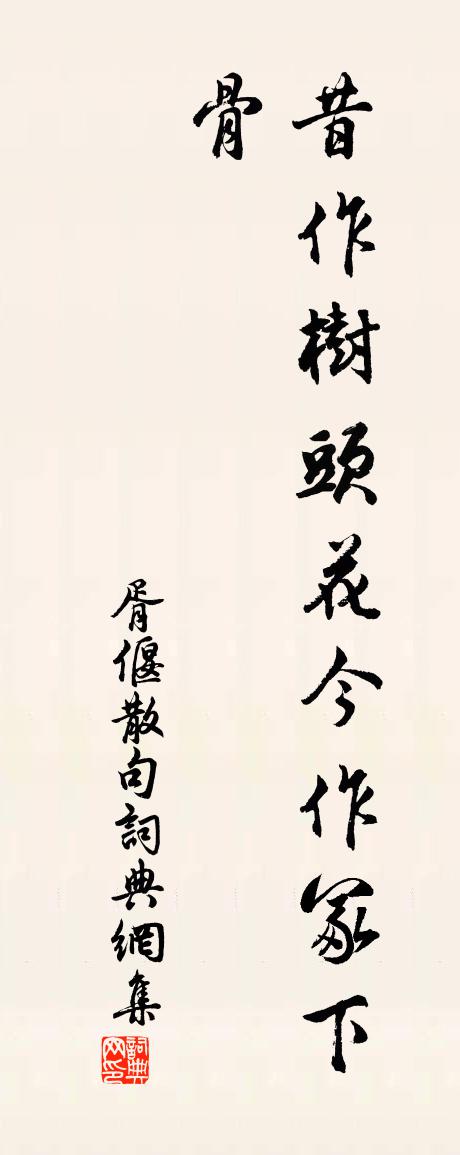 昔作樹頭花今作冢下
骨
胥偃散句詞典網集
詞典网印